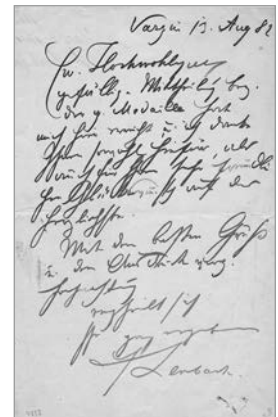 Varzin 13. Aug 82
Ew. Hochwohlgeb
gefällig. Mittheilg bez.
der g. Medaille hat
mich hier erreicht u. ich danke
Ihnen sowohl hiefür als
auch für Ihren sehr freundli
chen Glückwunsch auf das
herzlichste.
Mit den besten Grüß
u. dem Ausdruck vorz.
Hochachtung
Ihr ganz ergeben
Lenbach.